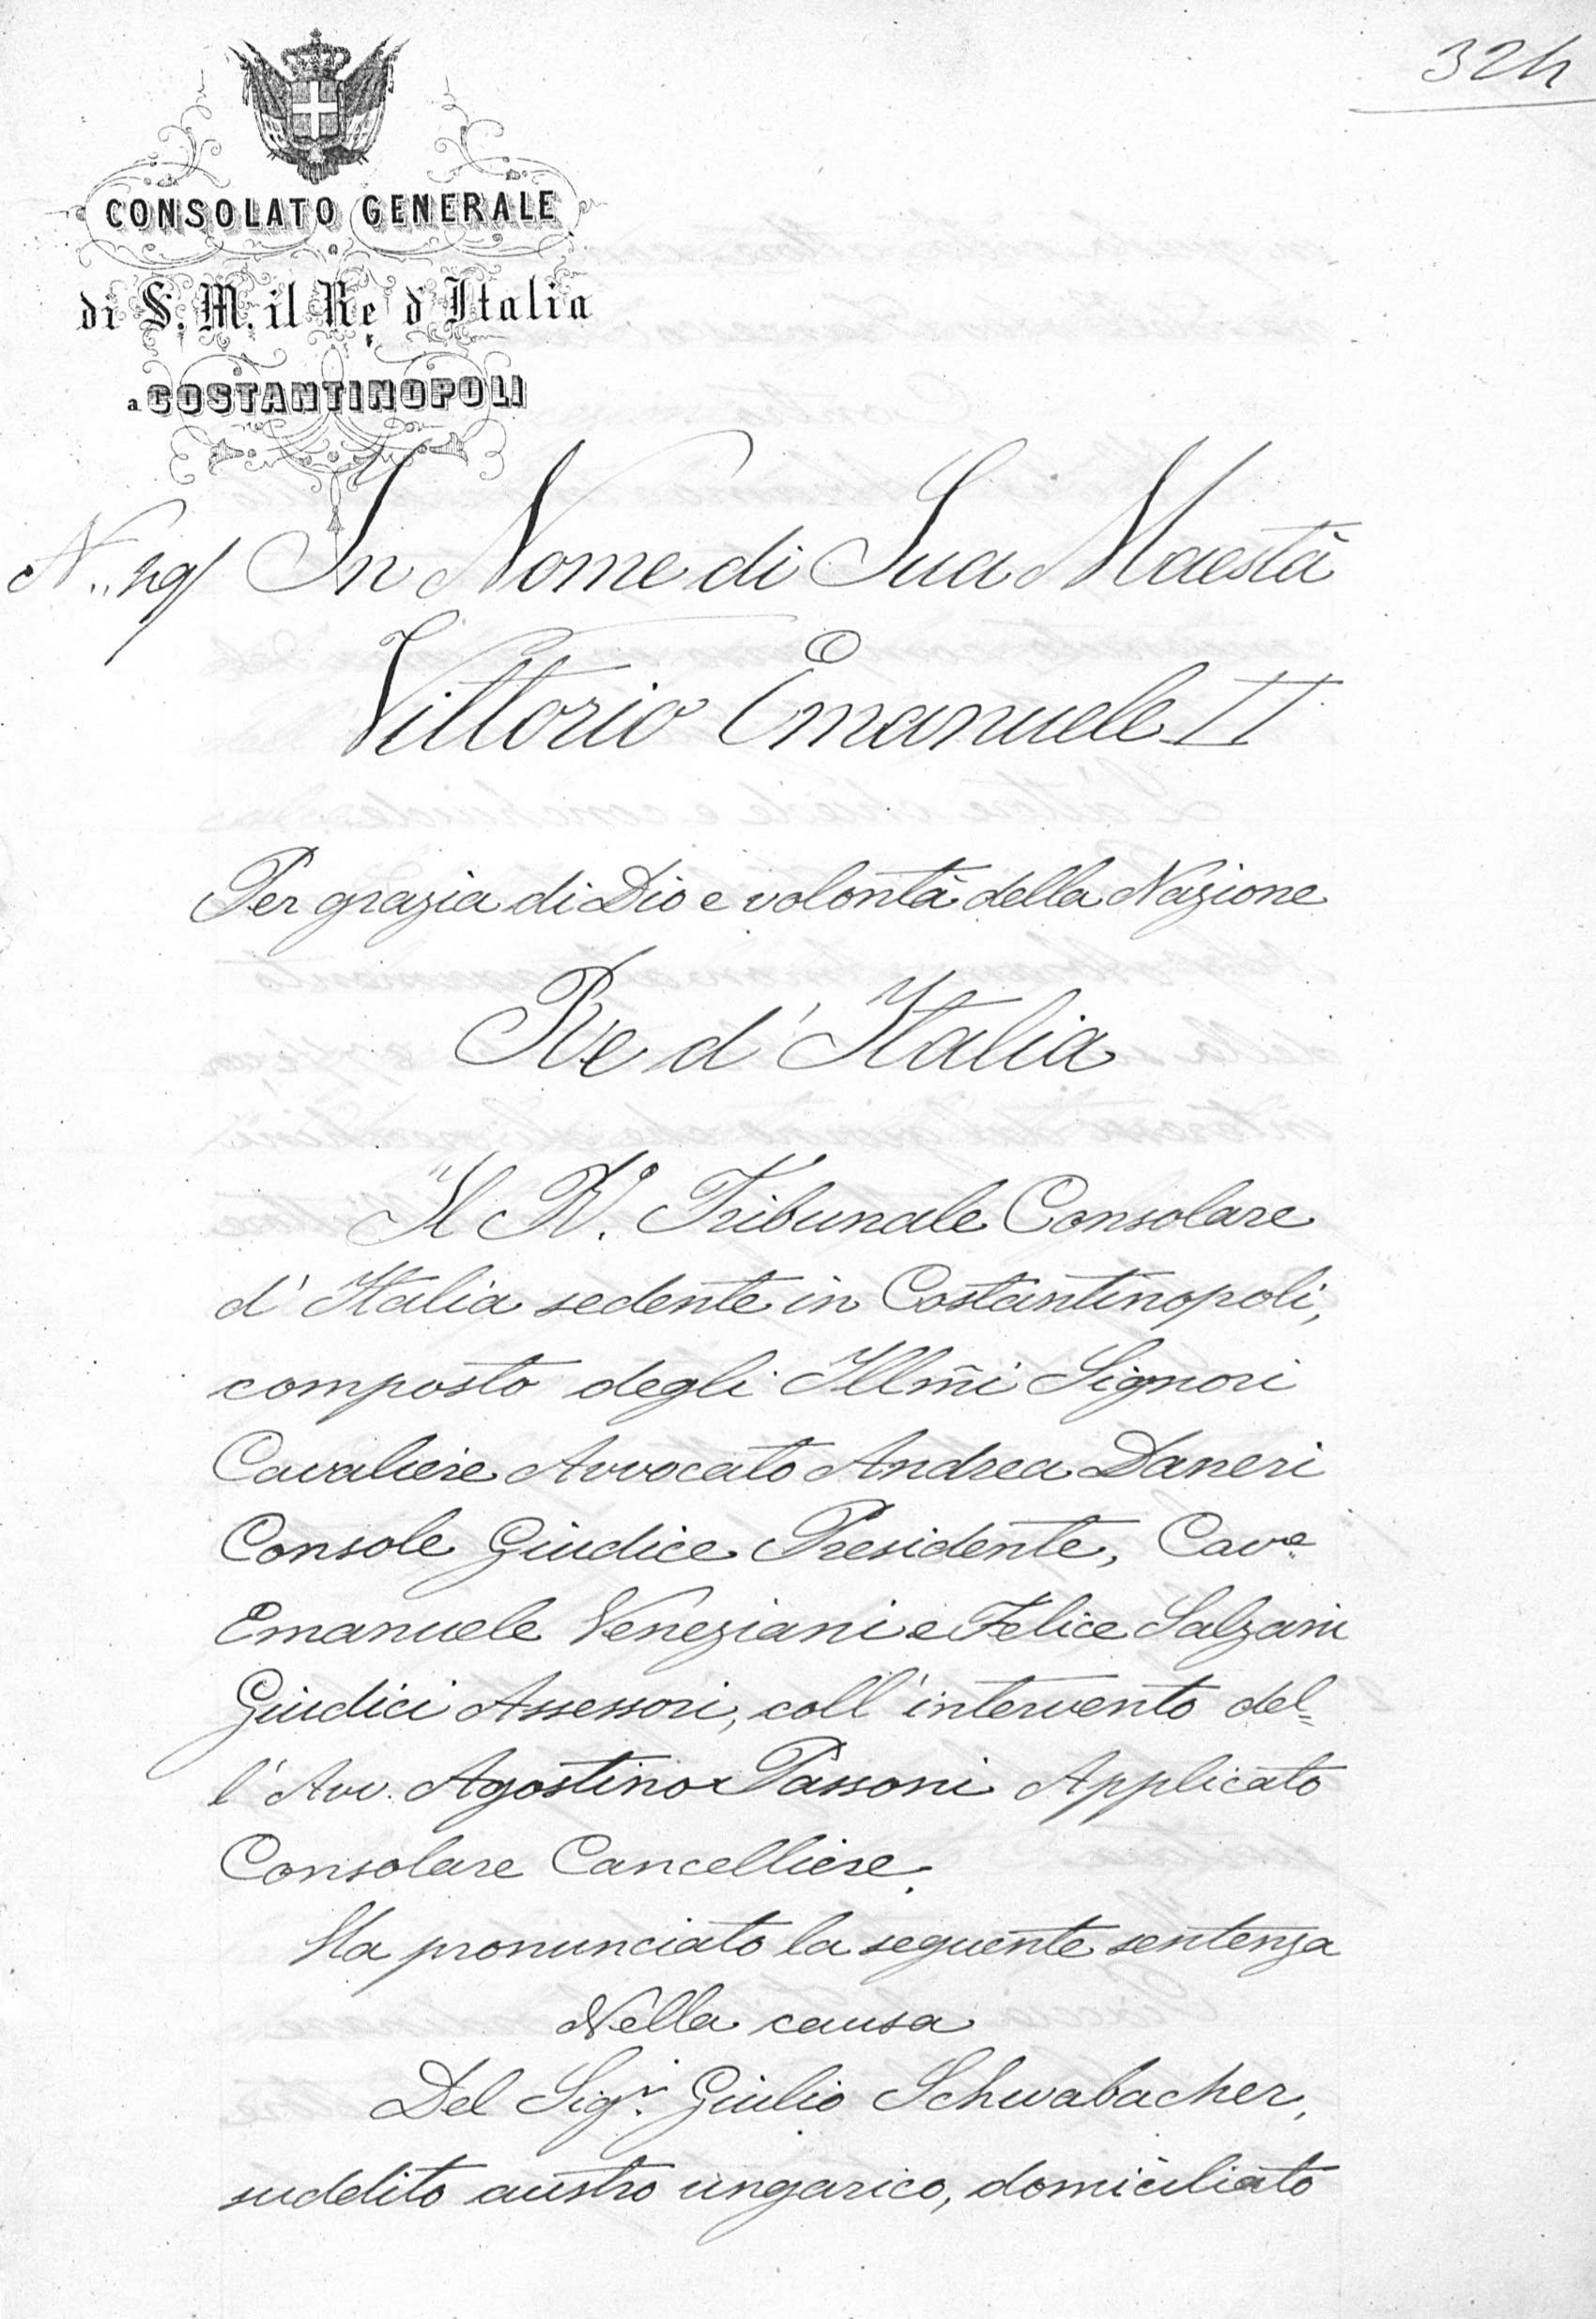 324
CONSOLATO GENERALE
di S. M. il Re d'Italia
a COSTANTINOPOLI
In Nome di Sua Maestà
Vittorio Emanuele II
Per grazia di Dio e volontà della Nazione
Re d'Italia
Il R.º Tribunale Consolare
d'Italia sedente in Costantinopoli,
composto degli Illm̃i Signori
Cavaliere Avvocato Andrea Daneri
Console Giudice Presidente, Cav.e
Emanuele Veneziani e Felice Salzani
Giudici Assessori, coll'intervento del=
l'Avv. Agostino Passoni Applicato
Consolare Cancelliere.
Ha pronunciato la seguente sentenza
Nella causa
Del Sig.r Giulio Schwabacher,
suddito austro ungarico, domiciliato